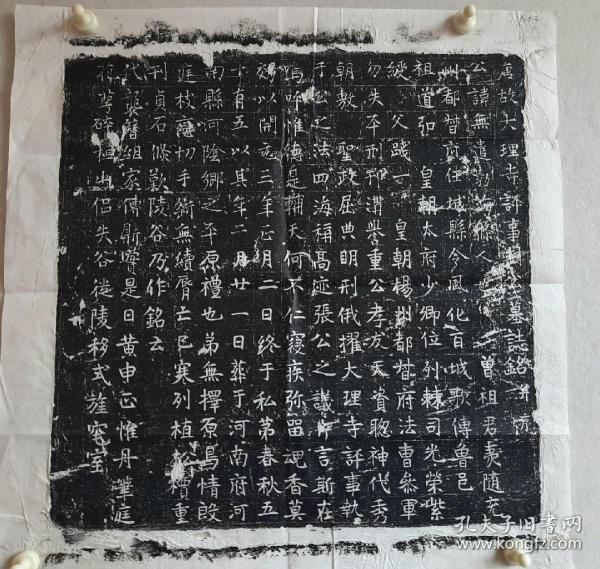 唐故大理寺評事公墓誌銘并序
公諱無遣勃海人曾祖君夷隨兗
州都督府任城縣令風化百城歌傳魯邑
祖道弘 皇朝太府少卿位列棘司光榮紫
綬父踐 皇朝楊州都督府法曹叅軍
勿失平刑神溝譽重公孝友天資聦神代秀
朝敷 聖政屈典明刑俄擢大理寺評事執
于公之法四海稱高迹張公之議片言斯在
嗚呼惟德是輔天何不仁寢疾弥留魂香莫
效以開元三年正月二日終于私第春秋五
十有五以其年二月廿一日葬于河南府河
南縣河陰鄉之平原禮也弟無擇原鳥情殷
庭枝慟切手銜無續脣亡已寒列植松檟重
刊貞石倏歎陵谷乃作銘云
代襲簪組家傳鼎鼐是日黄申正惟丹筆庭
花萃碎垣出侣失谷徙陵移式旌窀室
孔夫子旧书网
www.kongfz.com